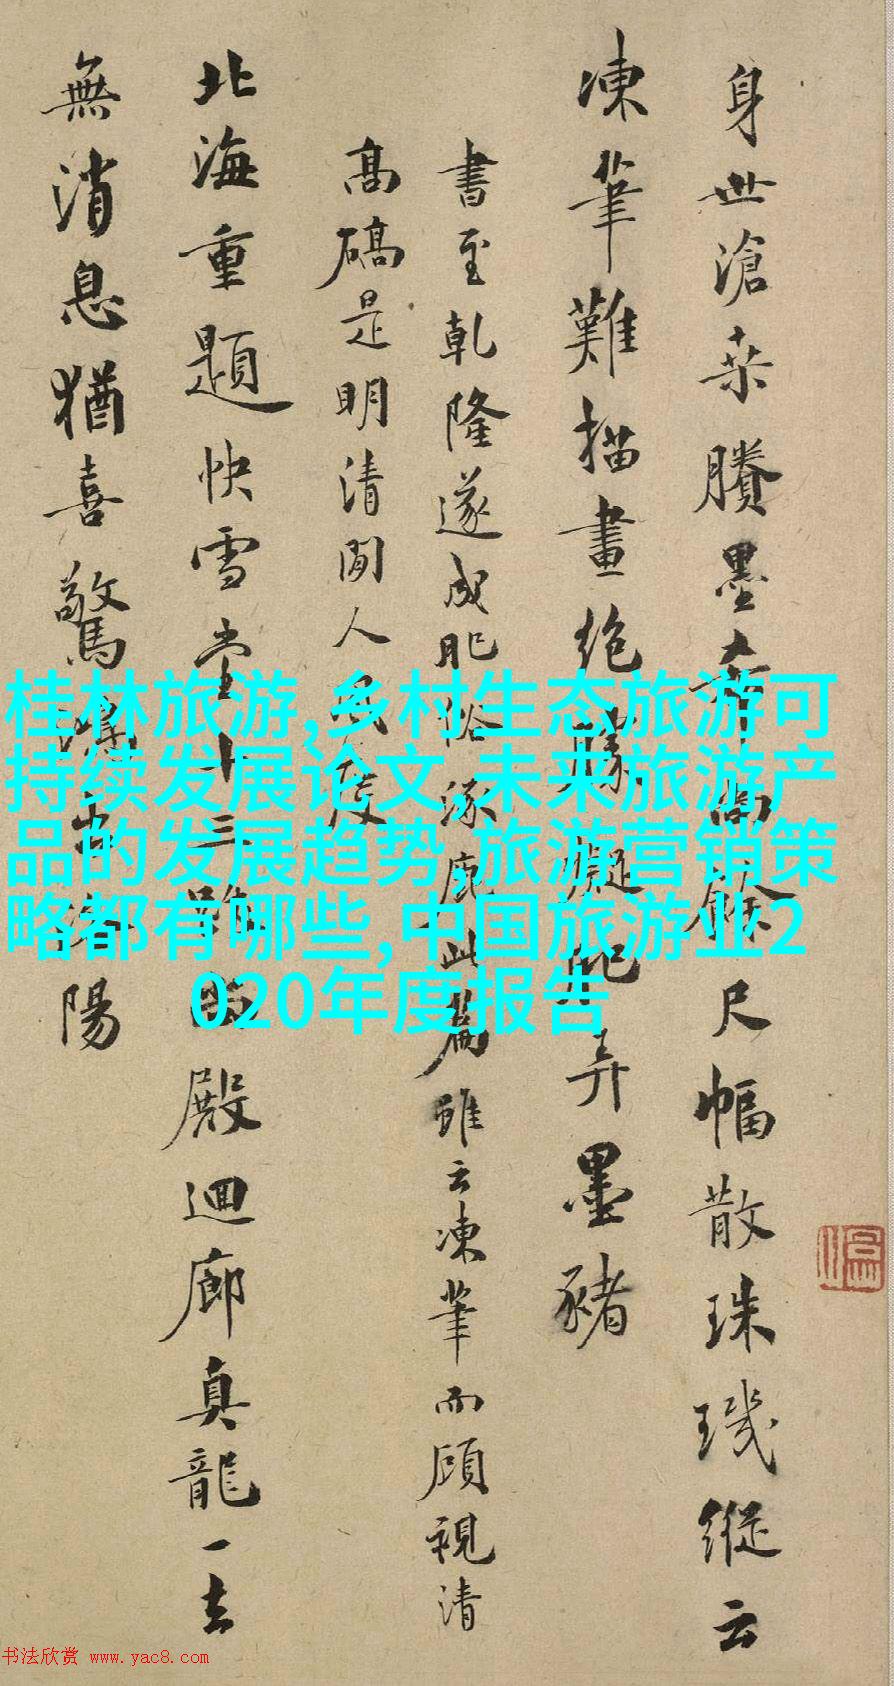 身世滄桑賸墨尚餘尺幅散珠璣縱云
凍筆難描畫絶勝肥弄墨豬
書至乾隆遂成肥俗涿鹿此篇雖云凍筆而顧視清
高碻是明清間人風度
北海重題快雪堂十三殿迴廊真龍一去
無消息猶喜驚鴻出洛陽
桂林旅游,乡村生态旅游可
持续发展论文,未来旅游产
品的发展趋势,旅游营销策
略都有哪些,中国旅游业2
020年度报告
书法欣赏 www.yac8.com